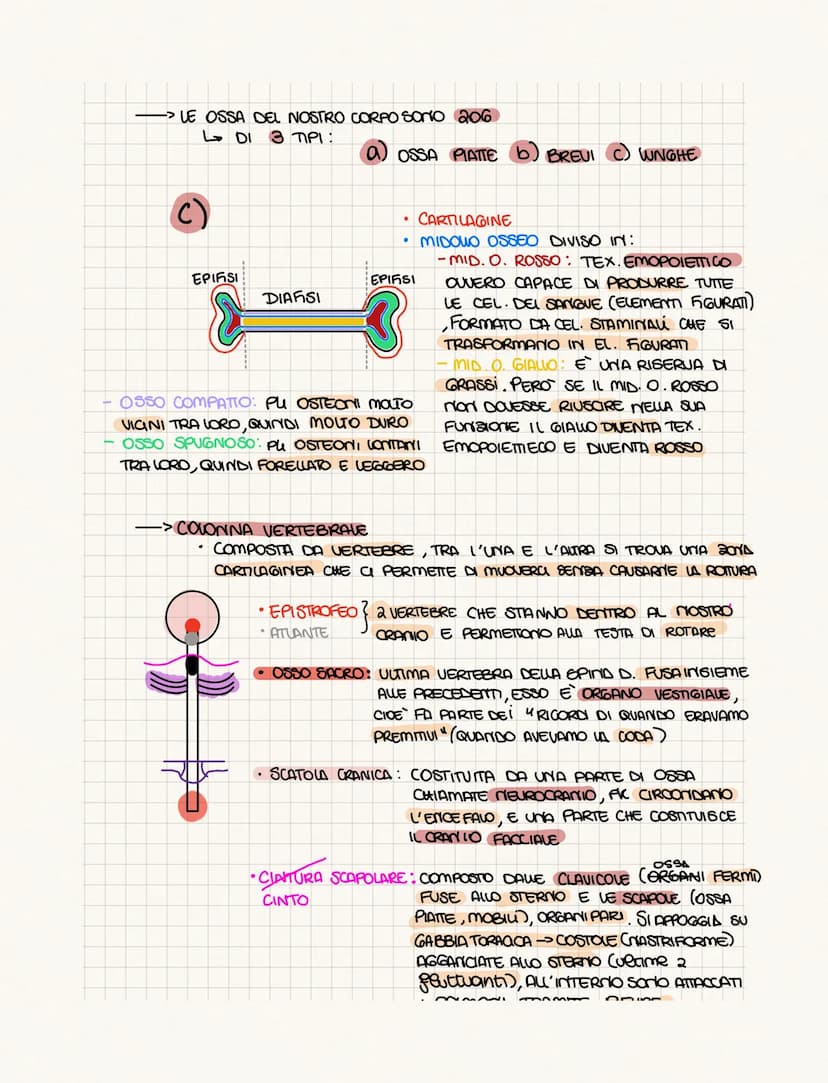 —> LE OSSA DEL NOSTRO CORPO SONO 206
↳ DI 3 TIPI:
a) OSSA PIATTE b) BREVI c) LUNGHE
C)
• CARTILAGINE
• MIDOLLO OSSEO DIVISO IN:
- MID. O. ROSSO: TEX. EMOPOIETICO
OVVERO CAPACE DI PRODURRE TUTTE
LE CEL. DEL SANGUE (ELEMENTI FIGURATI)
, FORMATO DA CEL. STAMINALI CHE SI
TRASFORMANO IN EL. FIGURATI
- MID. O. GIALLO: E' UNA RISERVA DI
GRASSI. PERO' SE IL MID. O. ROSSO
NON DOVESSE RIUSCIRE NELLA SUA
FUNSIONE IL GIALLO DIVENTA TEX.
EMOPOIETICO E DIVENTA ROSSO
EPIFISI
DIAFISI
EPIFISI
- OSSO COMPATTO: PU OSTEONI MOLTO
VICINI TRA LORO, QUINDI MOLTO DURO
- OSSO SPUGNOSO: PU OSTEONI LONTANI
TRA LORO, QUINDI FORELLATO E LEGGERO
—> COLONNA VERTEBRALE
• COMPOSTA DA VERTEBRE, TRA L'UNA E L'ALTRA SI TROVA UNA ZONA
CARTILAGINEA CHE CI PERMETTE DI MUOVERCI SENZA CAUSARNE LA ROTTURA
• EPISTROFEO } 2 VERTEBRE CHE STANNO DENTRO AL NOSTRO
• ATLANTE CRANIO E PERMETTONO ALLA TESTA DI ROTARE
• OSSO SACRO: ULTIMA VERTEBRA DELLA SPINA D. FUSA INSIEME
ALLE PRECEDENTI, ESSO E' ORGANO VESTIGIALE,
CIOE' FA PARTE DEI "RICORDI DI QUANDO ERAVAMO
PREMITIVI" (QUANDO AVEVAMO LA CODA)
• SCATOLA CRANICA: COSTITUITA DA UNA PARTE DI OSSA
CHIAMATE NEUROCRANIO, CIRCONDANO
L'ENCEFALO, E UNA PARTE CHE COSTITUISCE
IL CRANIO FACCIALE
• CINTURA SCAPOLARE: COMPOSTO DALLE CLAVICOLE (ORGANI OSSA FERMI)
CINTO
FUSE ALLO STERNO E LE SCAPOLE (OSSA
PIATTE, MOBILI), ORGANI PARI. SI APPOGGIA SU
GABBIA TORACICA -> COSTOLE (NASTRIFORME)
AGGANCIATE ALLO STERNO (ULTIME 2
fluttuanti), ALL'INTERNO SONO ATTACCATI